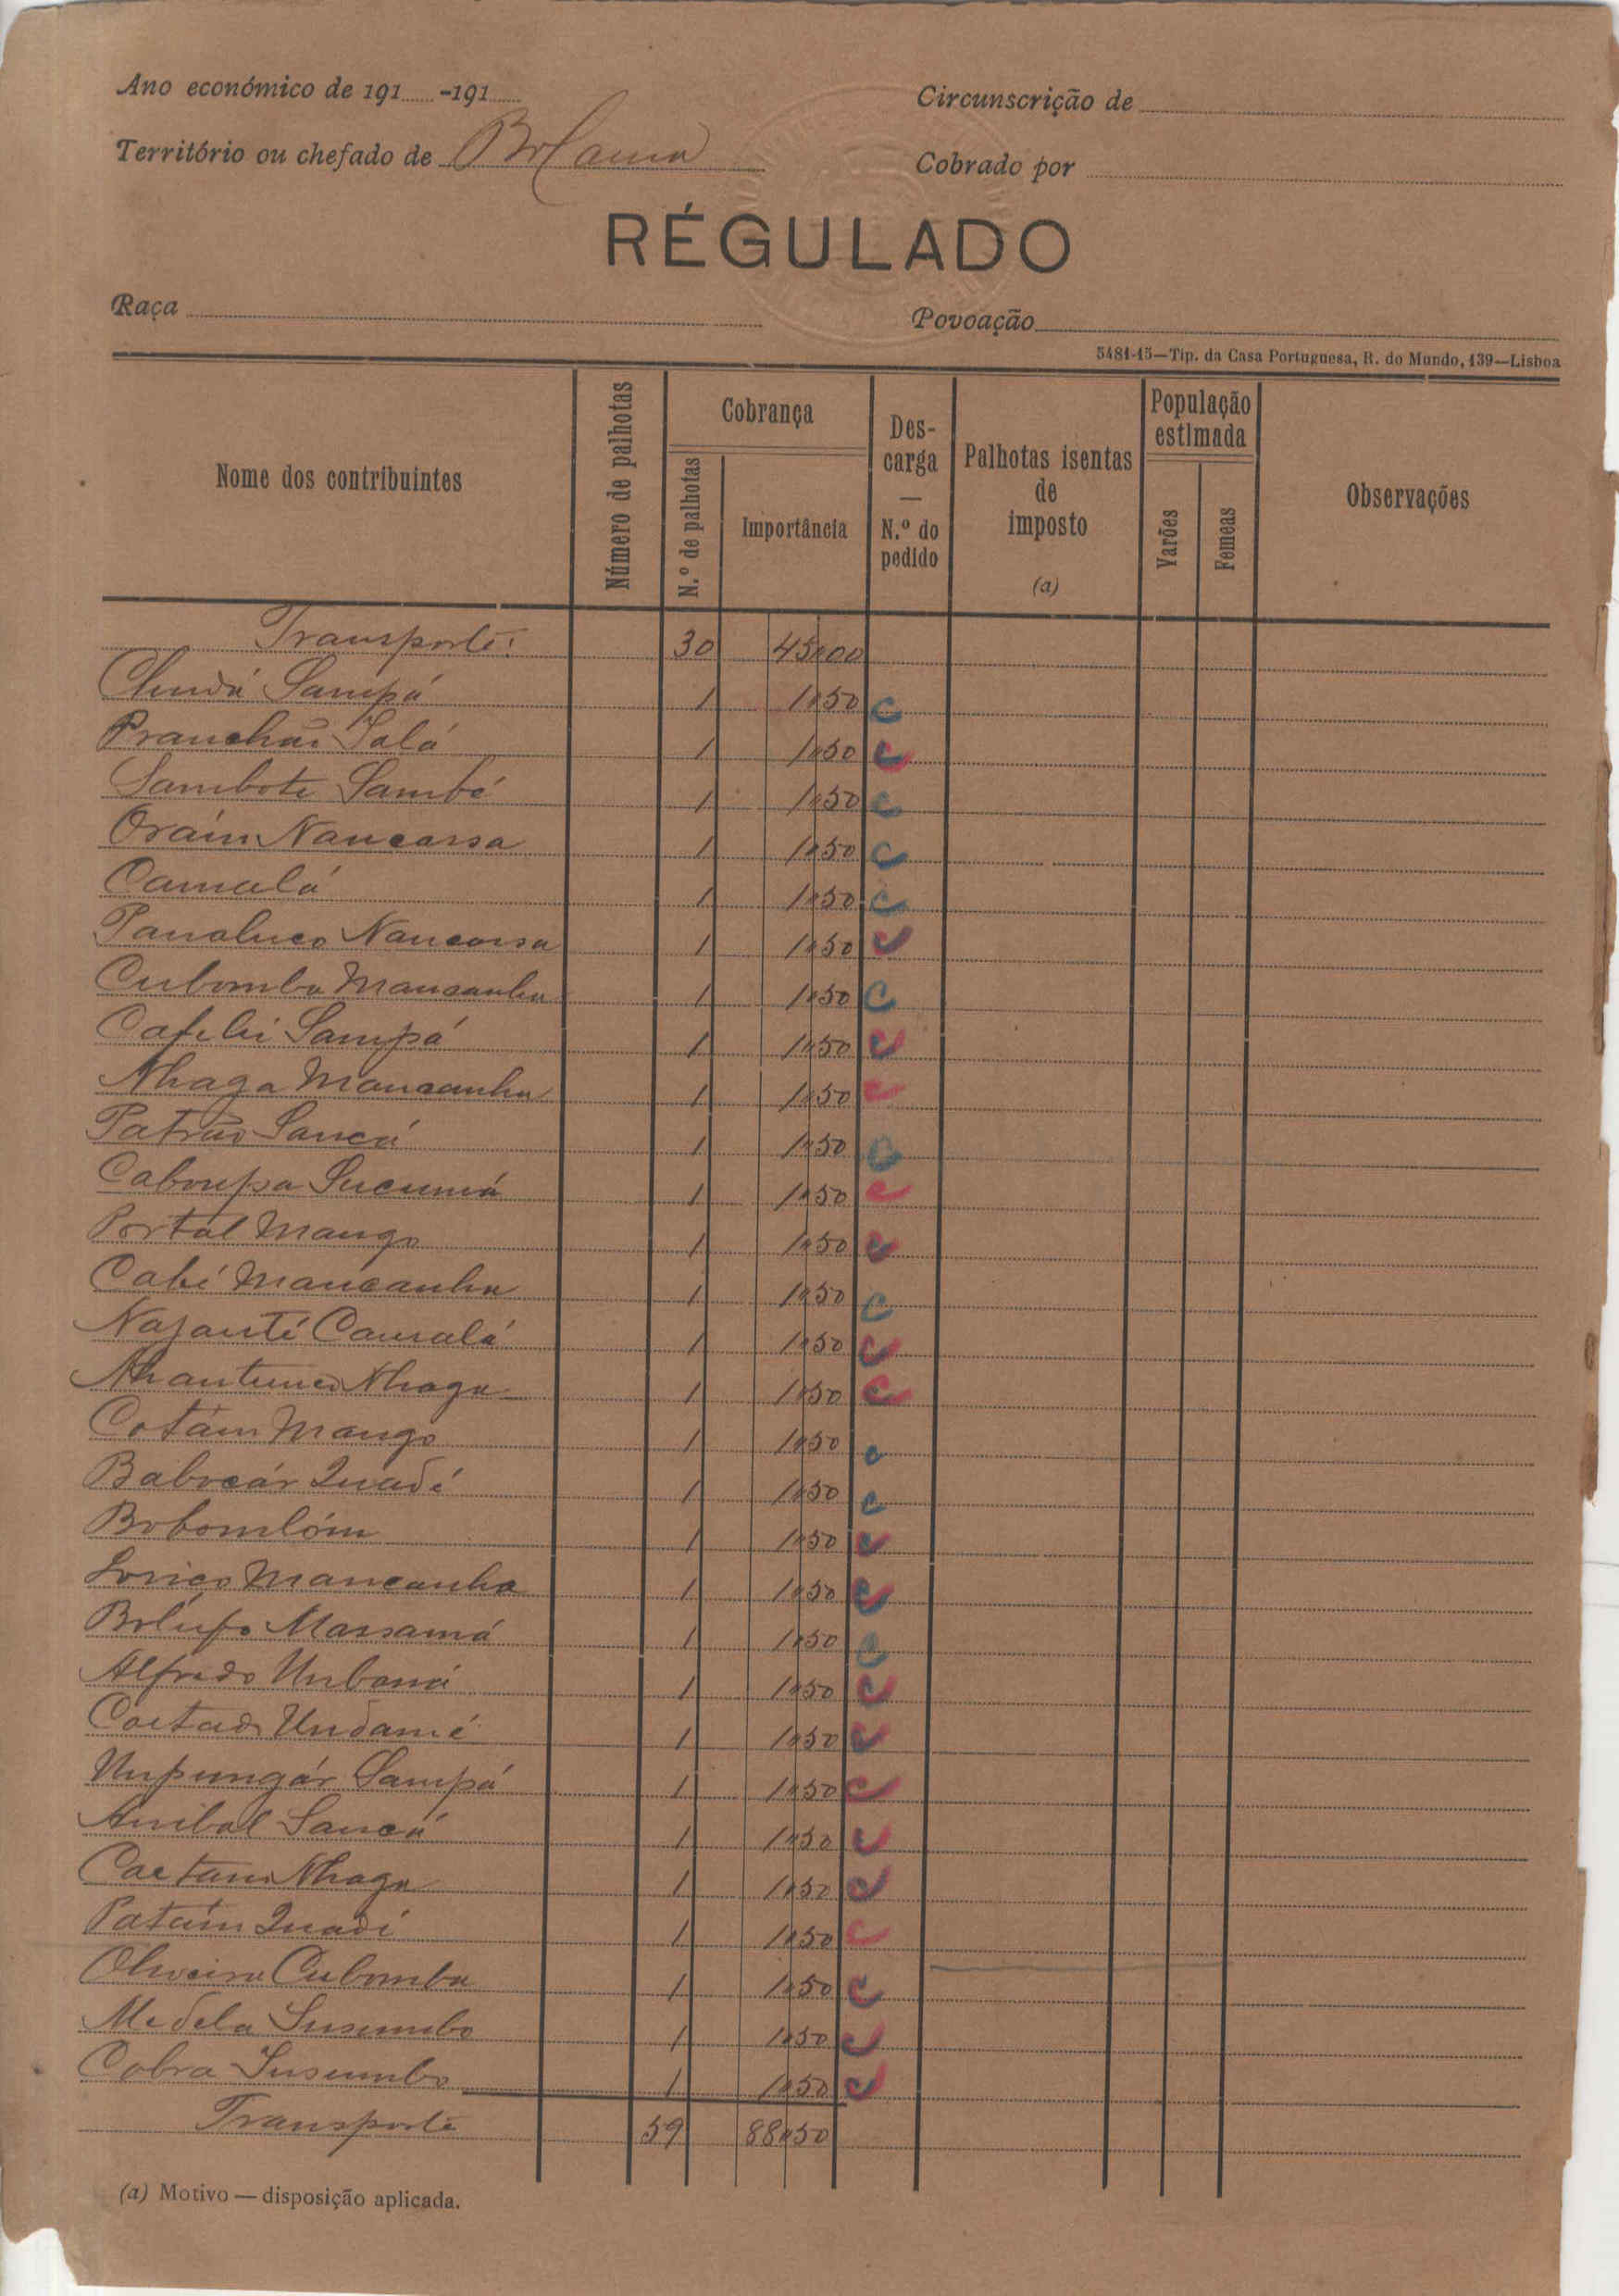 Ano económico de 191......-191......
Circunscrição de
Território ou chefado de Bolama
Cobrado por
RÉGULADO
Raça
Povoação
5481-15—Tip. da Casa Portuguesa, R. do Mundo, 139—Lisboa
Nome dos contribuintes
Número de palhotas
Cobrança
N.º de palhotas
Importância
Des-
carga
—
N.º do
pedido
Palhotas isentas
de
imposto
(a)
População
estimada
Varões
Femeas
Observações
Transporte: 30 45$00
Sampá 1 1$50 C
1 1$50 C
Sambote Sambé 1 1$50 C
Oraim Nancassa 1 1$50 C
Camalá 1 1$50 C
Nancassa 1 1$50 C
Cubomba Mancanha 1 1$50 C
Cafebi Sampá 1 1$50 C
Nhaga Mancanha 1 1$50 C
Patrão Sancá 1 1$50 C
Caboupa Sucumá 1 1$50 C
Portal Mango 1 1$50 C
Cabi Mancanha 1 1$50 C
Najanté Camalá 1 1$50 C
Nhaga 1 1$50 C
Cotám Mango 1 1$50 C
Babocár Quadé 1 1$50 C
Bobomlóm 1 1$50 C
Mancanha 1 1$50 C
Bolufo Massamá 1 1$50 C
Alfredo Unbaná 1 1$50 C
Undamé 1 1$50 C
Unpungár Sampá 1 1$50 C
Anibal Sancá 1 1$50 C
Caetano Nhaga 1 1$50 C
Patám Quadi 1 1$50 C
Oliveira Cubomba 1 1$50 C
Medela Susumbo 1 1$50 C
Cobra Susumbo 1 1$50 C
Transporte 59 88$50
(a) Motivo — disposição aplicada.